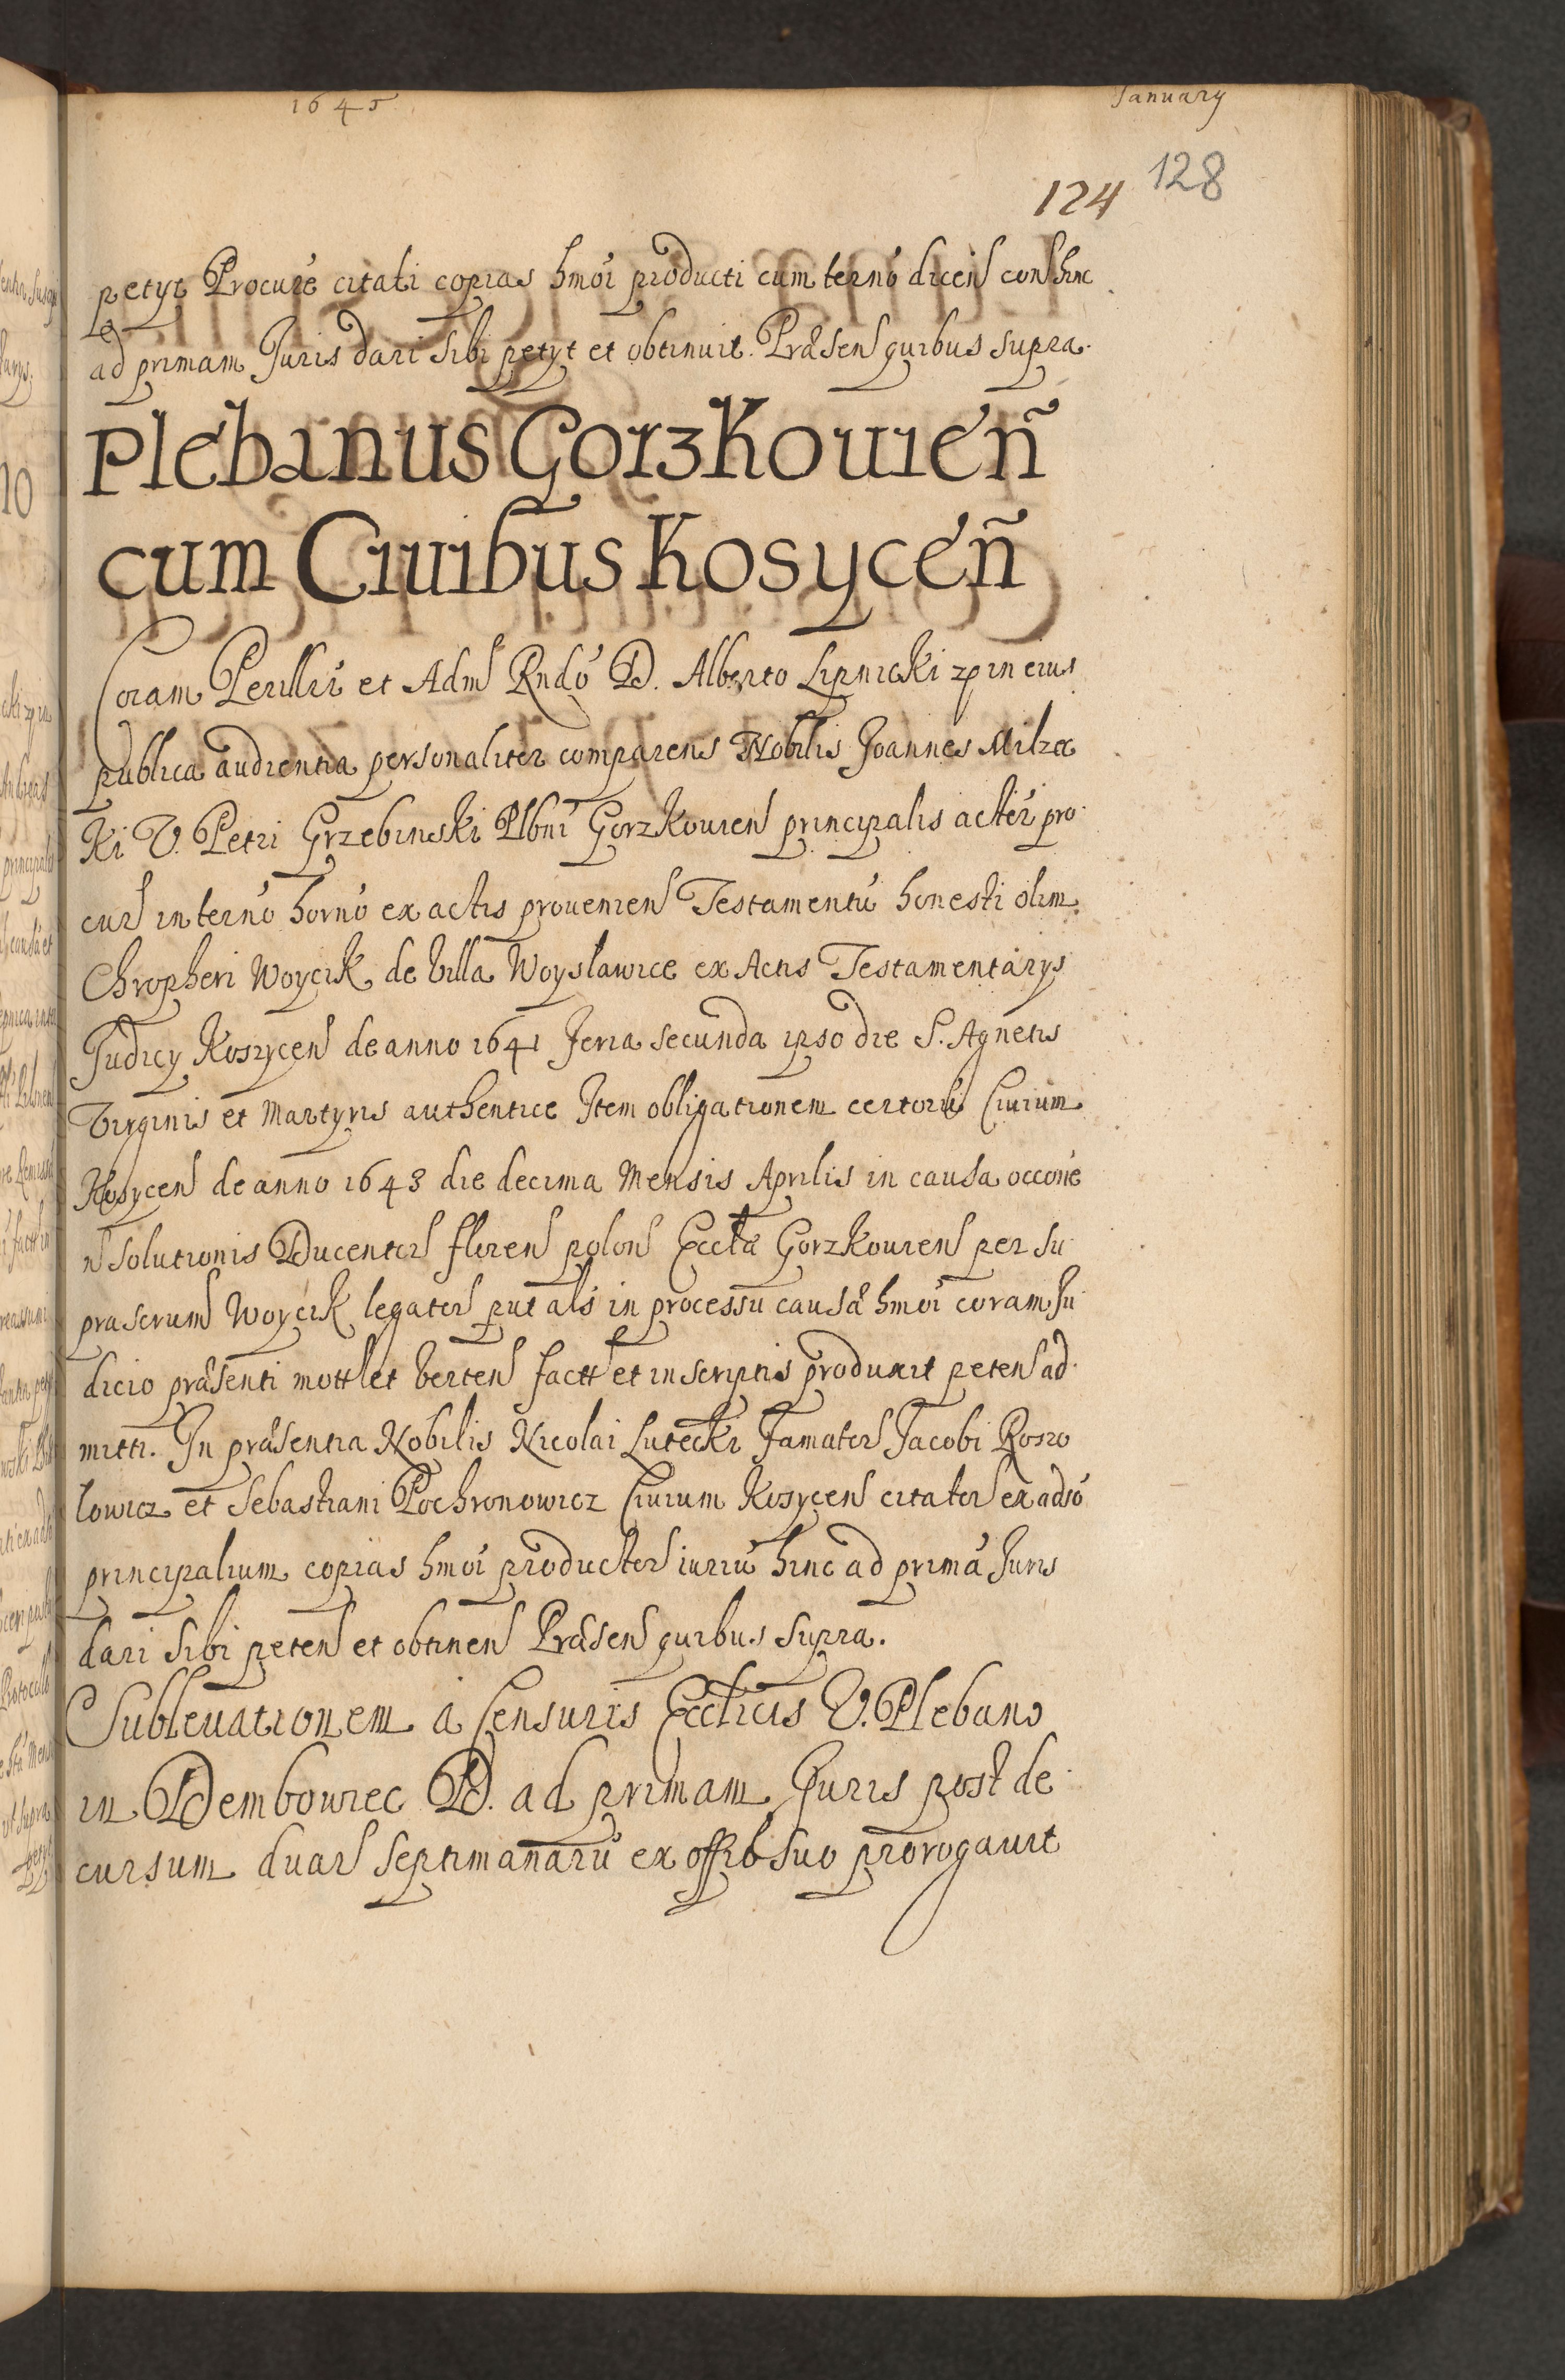 1645 January
124 128
petyt Procure citati copias hmoi producti cum terno dicen con hinc
ad primam Juris dari sibi petyt et obtinuit. Præsen quibus supra.
Plebanus Gorzkouien̄
cum Ciuibus Kosycen̄
Coram Perillri et Adm Rndo D. Alberto Lipnicki zp in eius
publica audientia personaliter comparens Nobilis Joannes Milze
ki V. Petri Grzebinski Plbni Gorzkouien principalis acter pro
cur in terno horno ex actis prouenien Testamentu honesti olim
Chropheri Woycik de Villa Woyslawice ex Actis Testamentarys
Judicy Kosycen de anno 1641 feria secunda ipso die S. Agnetis
Virginis et Martyris authentice Item obligationem certoru Ciuium
Kosycen de anno 1643 die decima Mensis Aprilis in causa occone
n solutionis Ducentor floren polon Eccła Gorzkouien per su
prascrum Woycik legator put als in processu causæ hmoi coram Ju
dicio præsenti mott et verten factt et in scriptis produxit peten ad
mitti. In præsentia Nobilis Nicolai Lutecki Famator Jacobi Roszo
lowicz et Sebastiani Pochronowicz Ciuium Kosycen citator ex adso
principalium copias hmoi productor iuriu hinc ad prima Juris
dari sibi peten et obtinen Præsen quibus supra.
Subleuationem a Censuris Ecclicis V. Plebano
in Dembowiec D. ad primam Juris post de
cursum duar septimanaru ex offio suo prorogauit